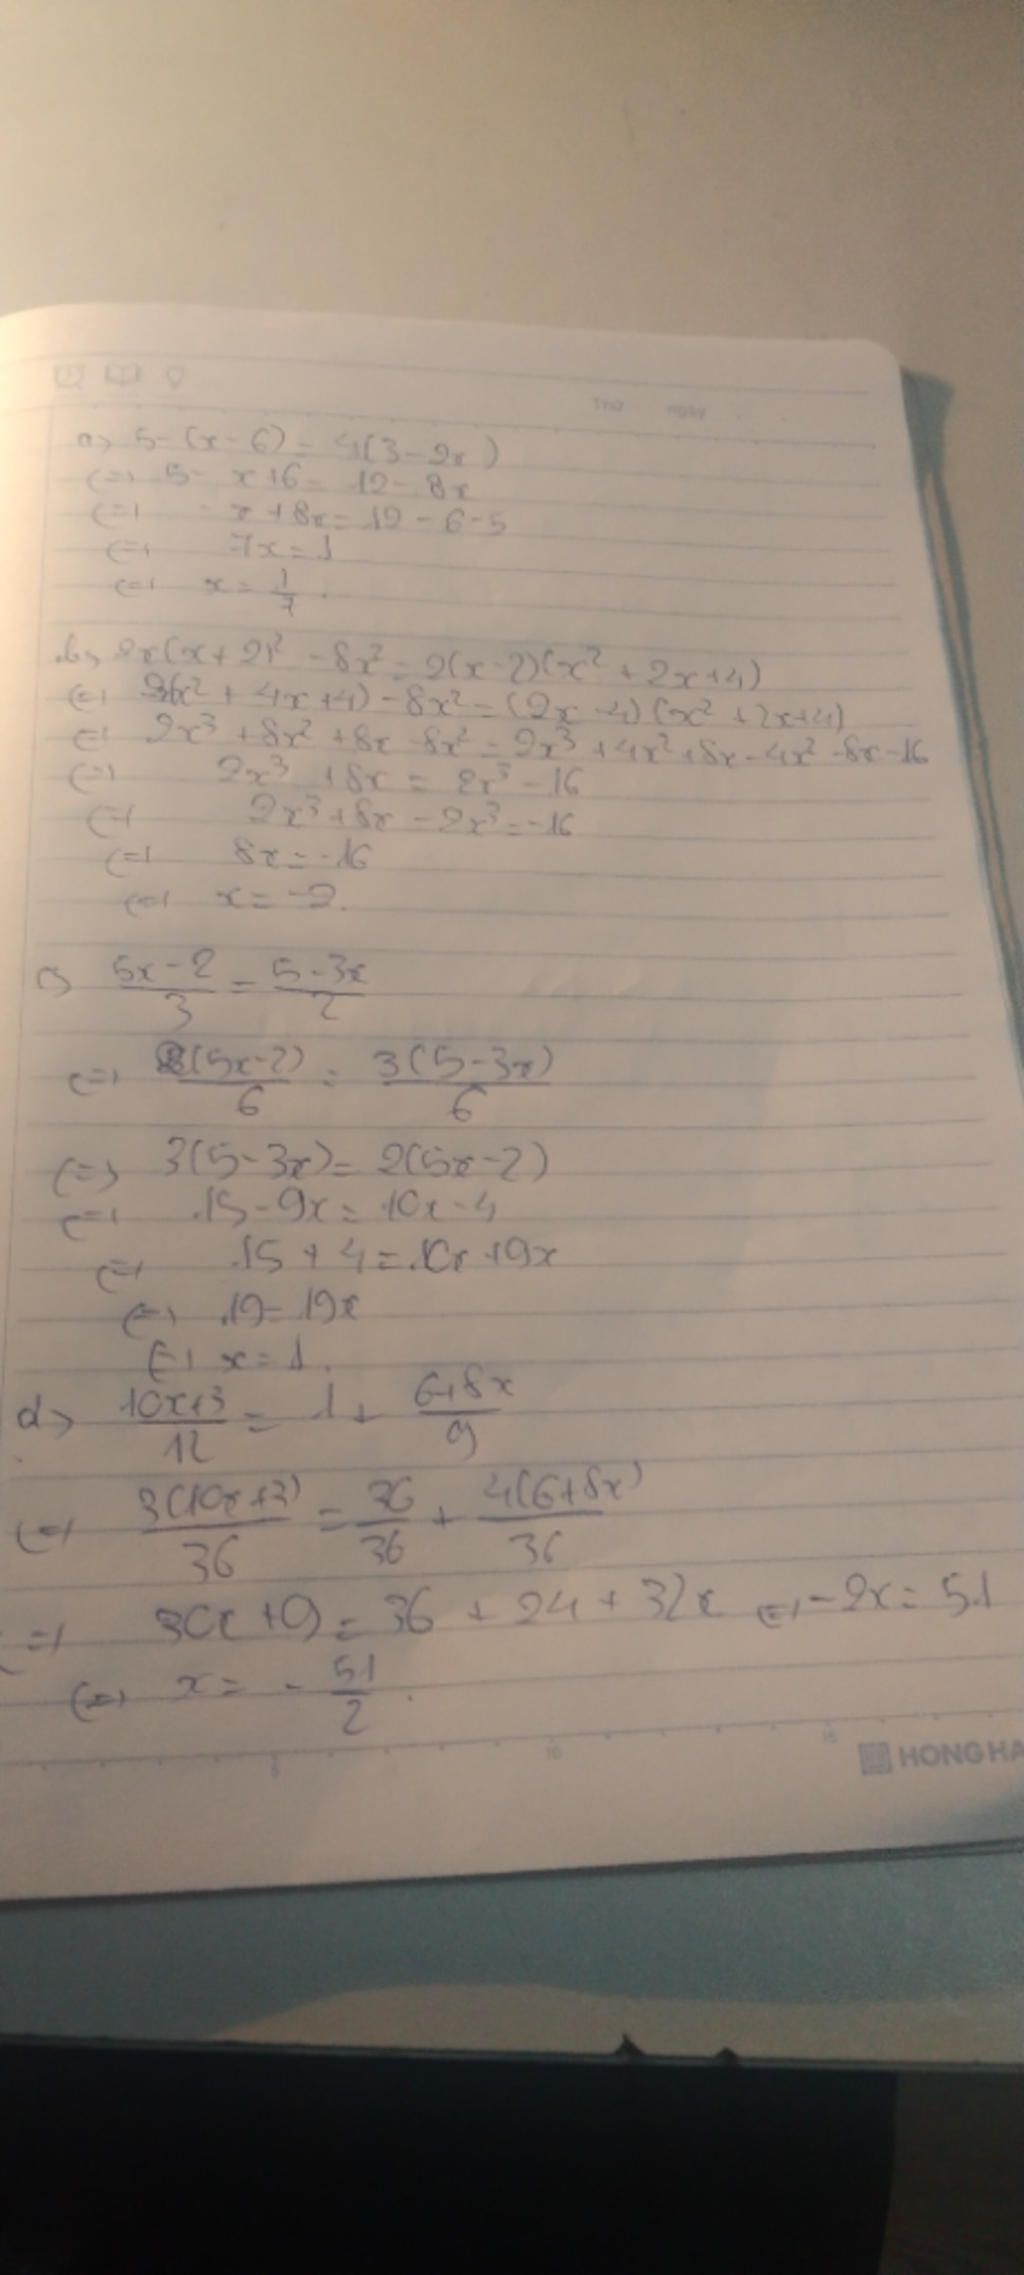 Thứ ngày
a) 5-(x-6) = 4(3-2x)
<=> 5-x+6 = 12-8x
<=> -x+8x = 12-6-5
<=> 7x = 1
<=> x = 1/7.
b) 2x(x+2)² - 8x² = 2(x-2)(x²+2x+4)
<=> 2x(x²+4x+4) - 8x² = (2x-4)(x²+2x+4)
<=> 2x³+8x²+8x-8x² = 2x³+4x²+8x-4x²-8x-16
<=> 2x³+8x = 2x³-16
<=> 2x³+8x-2x³ = -16
<=> 8x = -16
<=> x = -2.
c) (5x-2)/3 = (5-3x)/2
<=> 2(5x-2)/6 = 3(5-3x)/6
<=> 3(5-3x) = 2(5x-2)
<=> 15-9x = 10x-4
<=> 15+4 = 10x+9x
<=> 19 = 19x
<=> x = 1.
d) (10x+3)/12 = 1 + (6+8x)/9
<=> 3(10x+3)/36 = 36/36 + 4(6+8x)/36
<=> 30x+9 = 36+24+32x <=> -2x = 51
<=> x = -51/2.
5 10 15
HONG HA